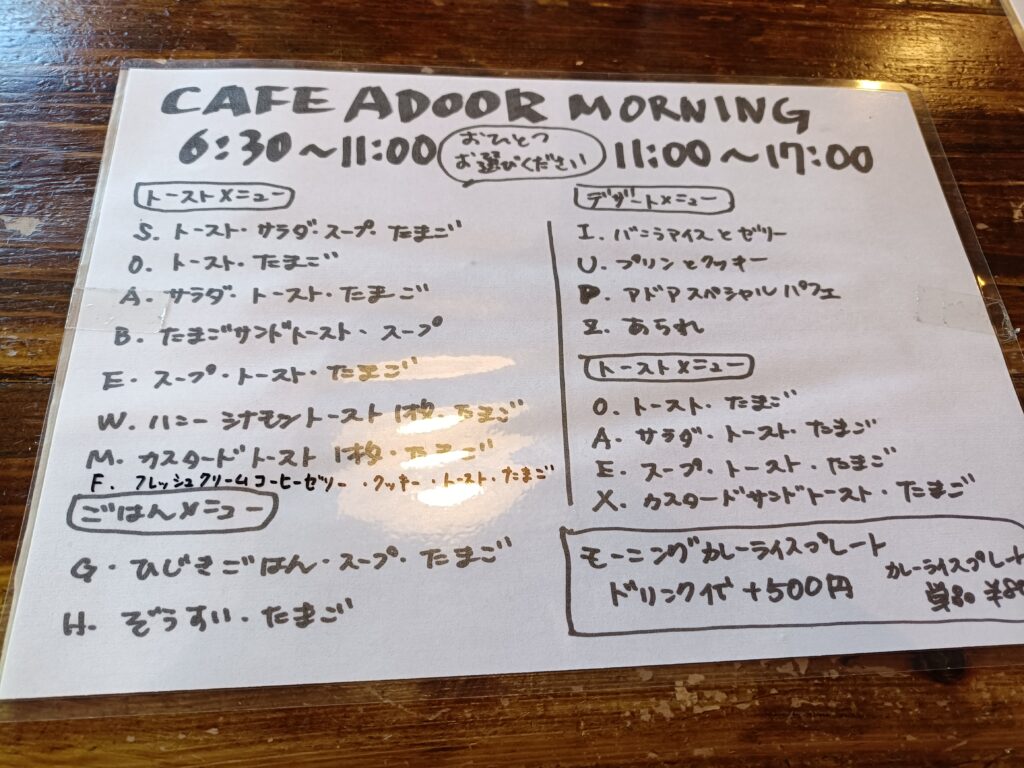 CAFE ADOOR MORNING
6:30～11:00
おひとつ
お選びください
11:00～17:00
トーストメニュー
S. トースト・サラダ・スープ・たまご
O. トースト・たまご
A. サラダ・トースト・たまご
B. たまごサンドトースト・スープ
E. スープ・トースト・たまご
W. ハニーシナモントースト1枚・たまご
M. カスタードトースト1枚・たまご
F. フレッシュクリームコーヒーゼリー・クッキー・トースト・たまご
ごはんメニュー
G. ひじきごはん・スープ・たまご
H. ぞうすい・たまご
デザートメニュー
I. バニラアイスとゼリー
U. プリンとクッキー
P. アドアスペシャルパフェ
Z. あられ
トーストメニュー
O. トースト・たまご
A. サラダ・トースト・たまご
E. スープ・トースト・たまご
X. カスタードサンドトースト・たまご
モーニングカレーライスプレート
ドリンク代+500円
カレーライスプレート
単品